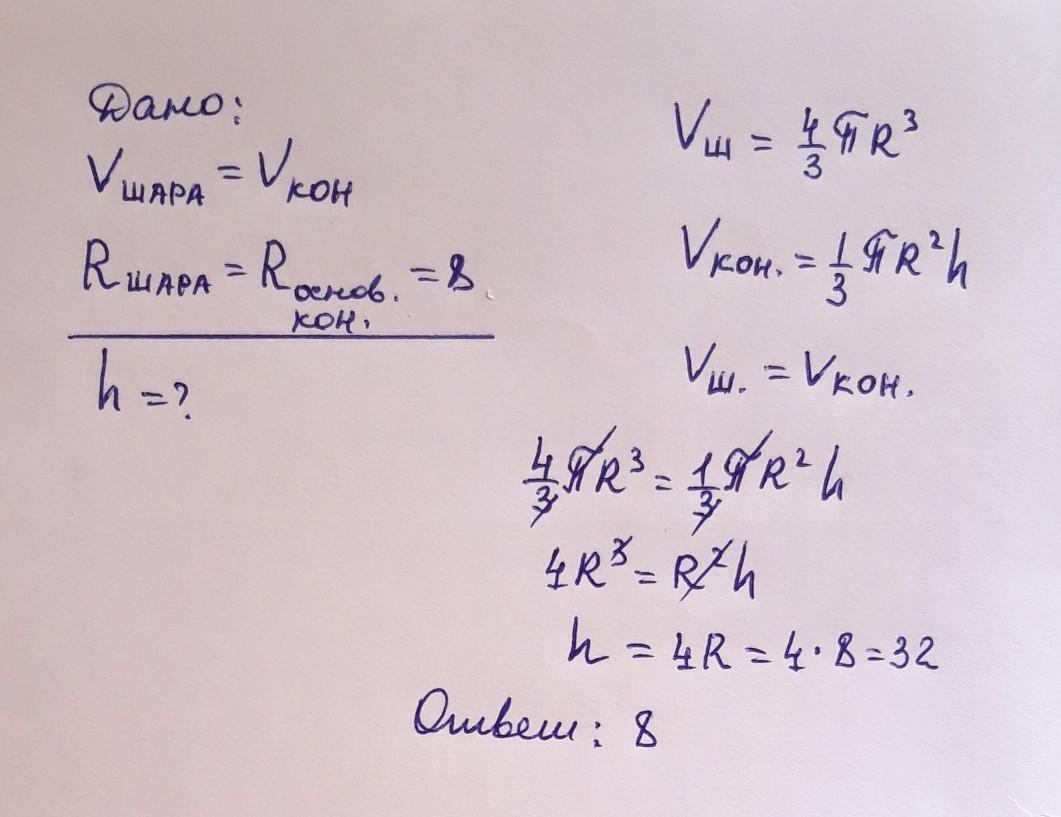 Дано:
Vшара = Vкон
Rшара = Rоснов. кон. = 8
h = ?
Vш = 4/3 πR³
Vкон. = 1/3 πR²h
Vш. = Vкон.
4/3 πR³ = 1/3 πR² h
4R³ = R²h
h = 4R = 4·8=32
Ответ: 8